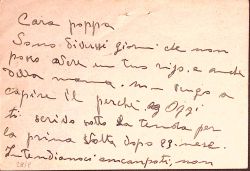 Cara poppa
Sono diversi giorni che non
posso avere un tuo rigo, e anche
della mamma. non riesco a
capire il perchè. Oggi
ti scrivo sotto la tenda per
la prima volta dopo 22 mesi.
Intendiamoci accampati, non